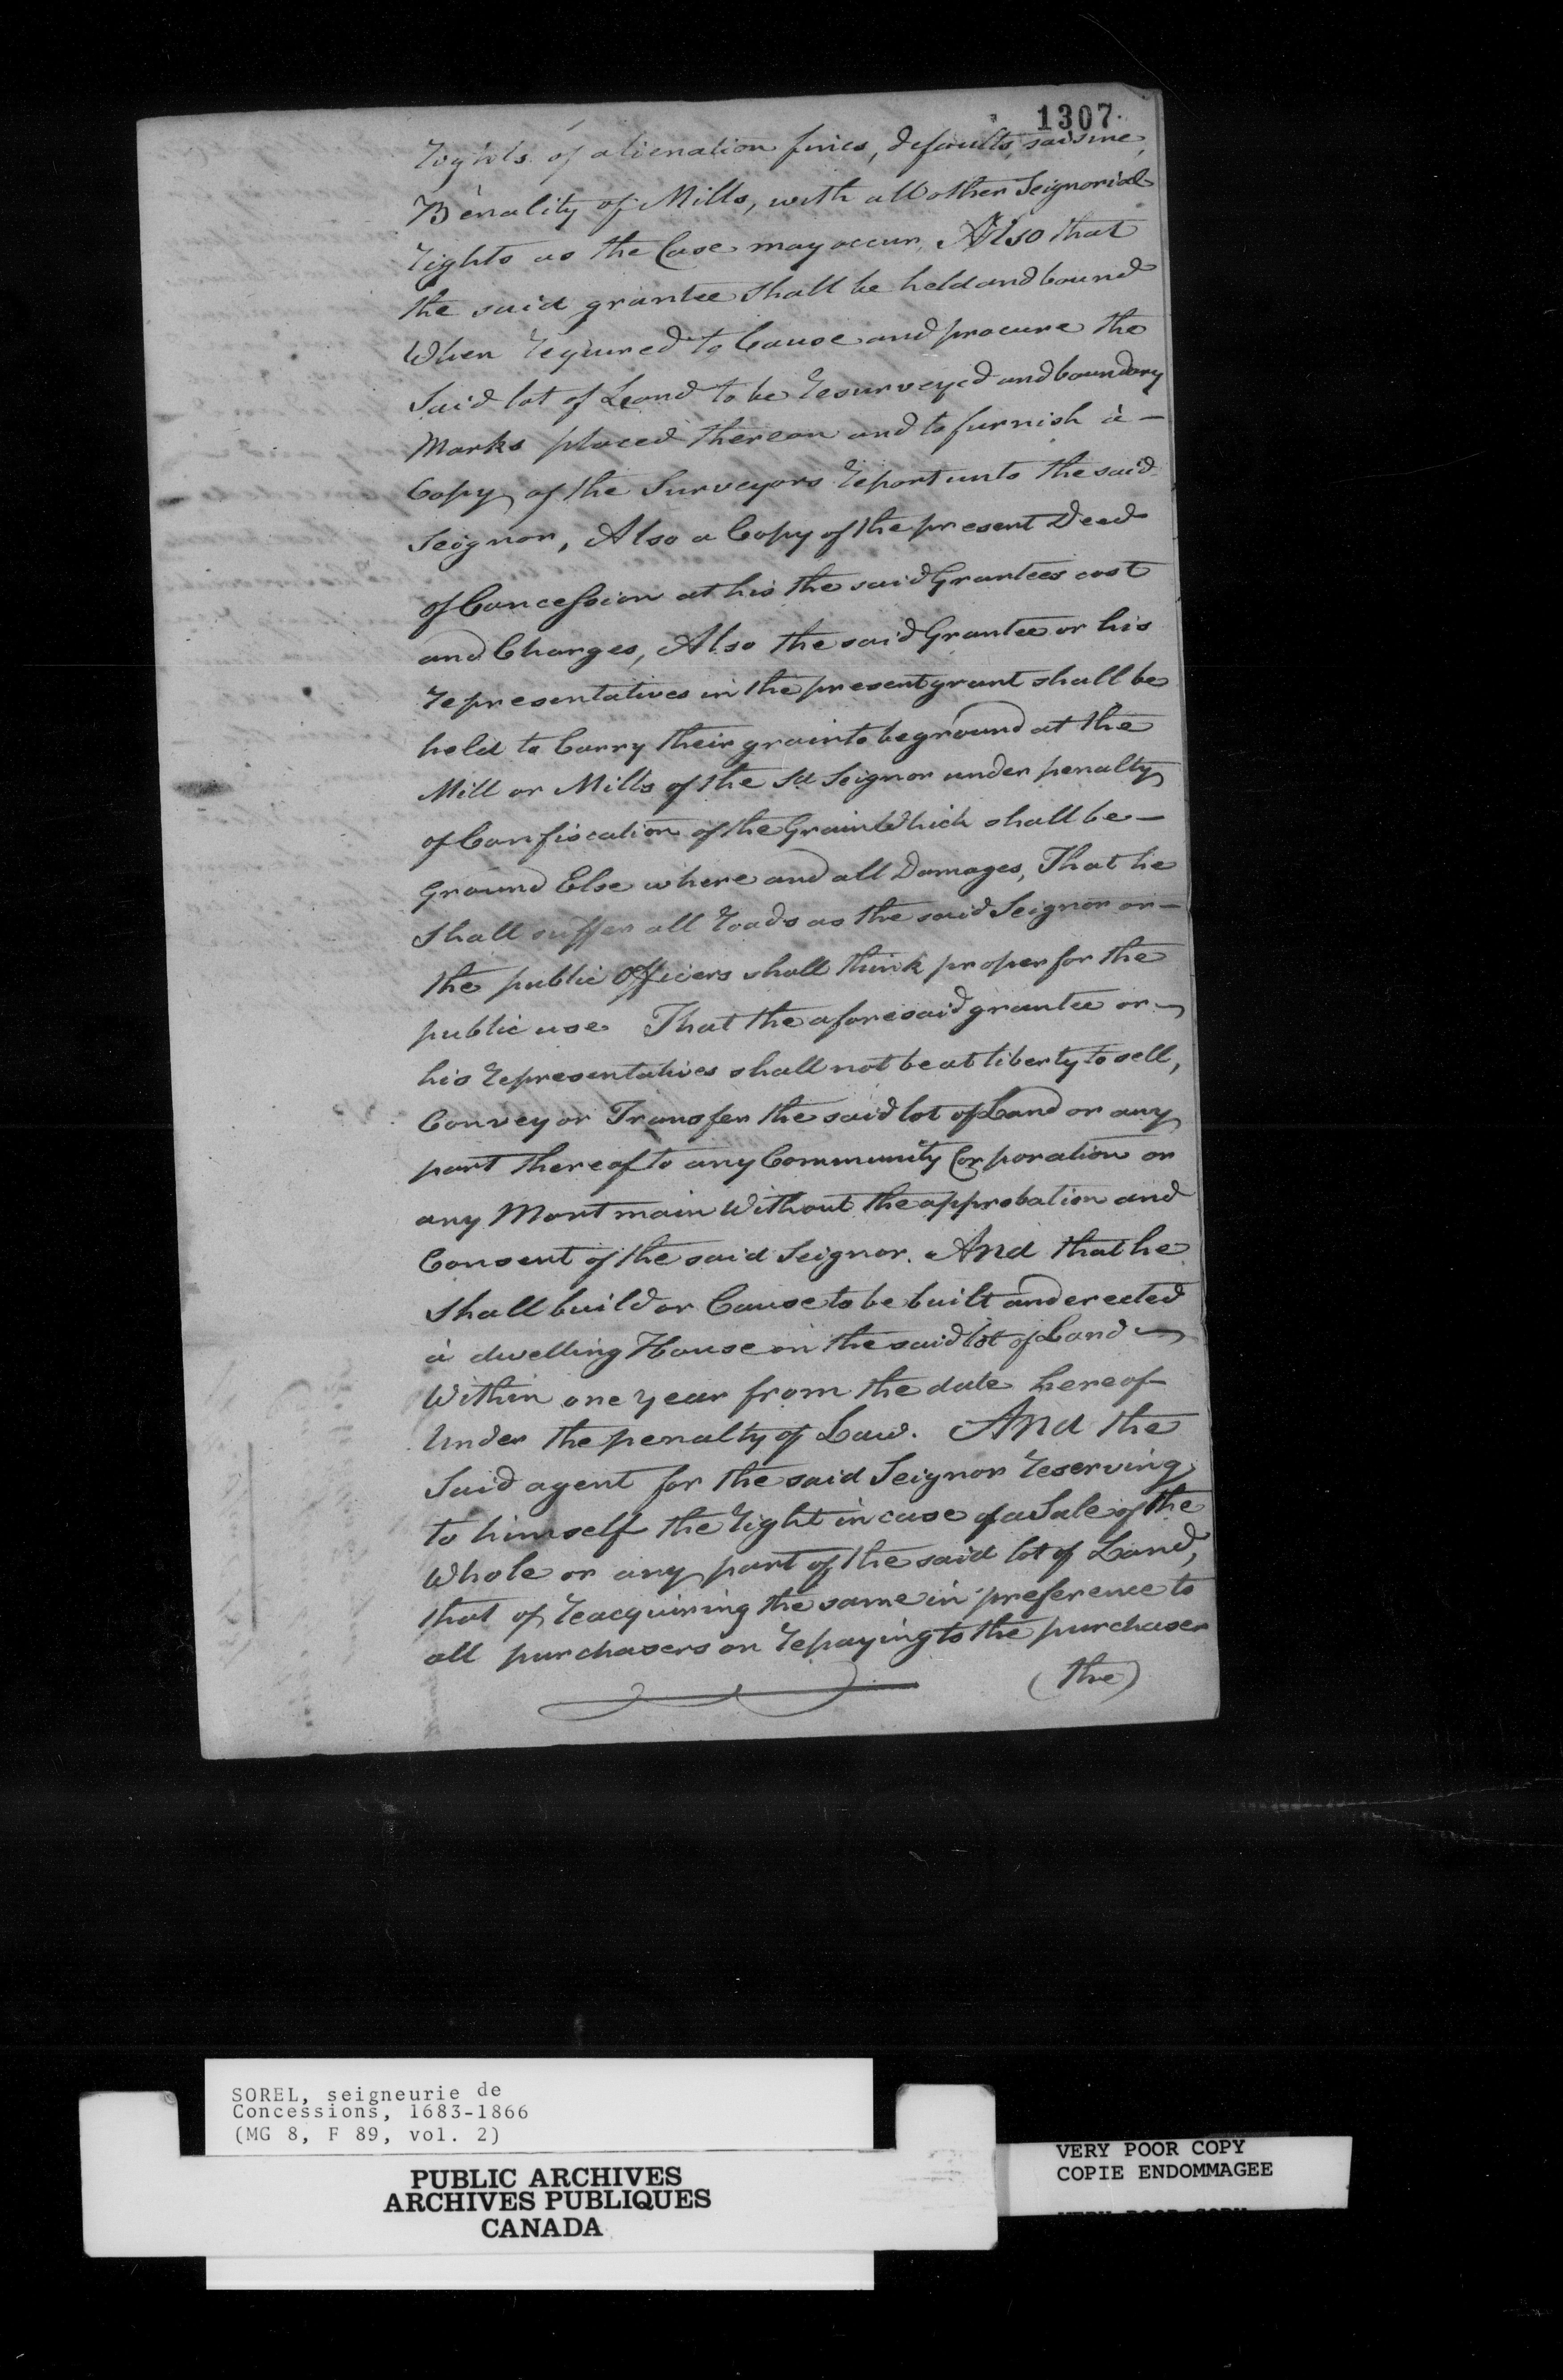 1307
rights of alienation fines, defaults, saisine,
Bénality of Mills, with all other Seignorial
rights as the Case may occur, Also that
the said grantee shall be held and bound
When required to Cause and procure the
Said lot of Land to be resurveyed and boundary
Marks placed thereon and to furnish à —
Copy of the Surveyors report unto the said
Seignor, Also a Copy of the present Deed
of Concession at his the said Grantees cost
and Charges, Also the said Grantee or his
representatives in the present grant shall be
held to Carry their grain to be ground at the
Mill or Mills of the Sd Seignor under penalty
of Confiscation of the Grain Which shall be —
Ground Else where and all Damages, That he
Shall suffer all roads as the said Seignor or —
the public Officers shall think proper for the
public use. That the aforesaid grantee or —
his representatives shall not be at liberty to sell,
Convey or Transfer the said lot of Land or any
part thereof to any Community Corporation or
any Mortmain Without the approbation and
Consent of the said Seignor. And that he
Shall build or Cause to be built and erected
à dwelling House on the said lot of Land —
Within one year from the date hereof
Under the penalty of Law. And the
Said agent for the said Seignor reserving
to himself the right in case of a Sale of the
Whole or any part of the said lot of Land,
that of reacquiring the same in preference to
all purchasers on repaying to the purchaser
(the)
SOREL, seigneurie de
Concessions, 1683-1866
(MG 8, F 89, vol. 2)
PUBLIC ARCHIVES
ARCHIVES PUBLIQUES
CANADA
VERY POOR COPY
COPIE ENDOMMAGEE
VERY POOR COPY